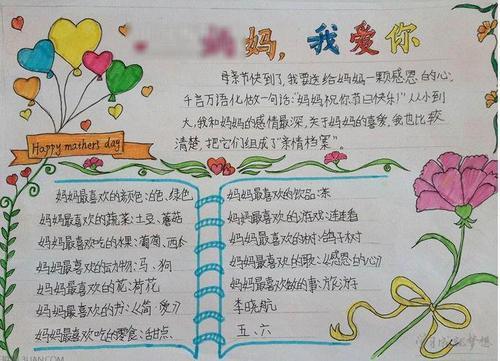 妈妈,我爱你
母亲节快到了,我要送给妈妈一颗感恩的心。
千言万语化做一句话:"妈妈祝你节日快乐!"从小到
大,我和妈妈的感情最深,关于妈妈的喜爱,我也比较
清楚,把它们组成了"亲情档案"。
Happy mathers day
妈妈最喜欢的颜色:白色、绿色
妈妈最喜欢的蔬菜:土豆、蘑菇
妈妈最喜欢吃的水果:葡萄、西
妈妈最喜欢的动物:马、狗
妈妈最喜欢的花:荷花
妈妈最喜欢的书:《简·爱》
妈妈最喜欢吃的零食:甜点
妈妈最喜欢的饮品:茶
妈妈最喜欢的游戏:连连看
妈妈最喜欢的树:鸽子树
妈妈最喜欢的歌:《感恩的心》
妈妈最喜欢做的事:旅游
李晓航
五、六